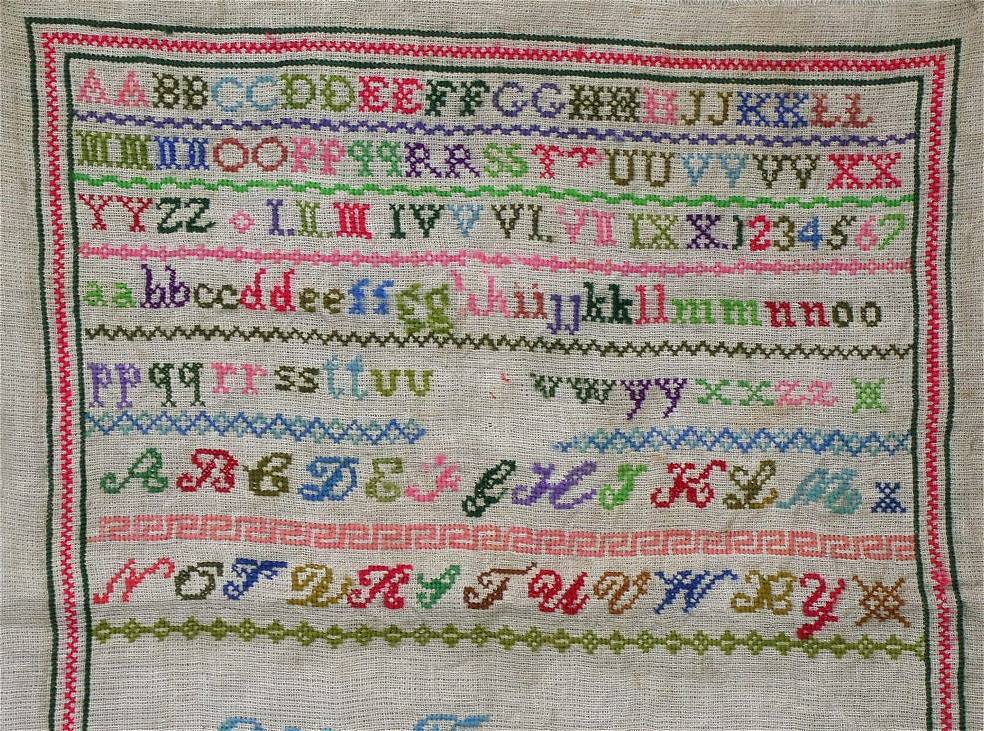 AABBCCDDEEFFGGHHIIJJKKLL
MMNNOOPPqqRRSSTTUUVVVVXX
YYZZ I.II.III IV V VI. VII IX X.1234567
aabbccddeeffgghhiijjkkllmmnnoo
ppqqrrssttuu vwwyyxxzz
A B C D E F G H I K L M
N O P Q R S T U V W X Y